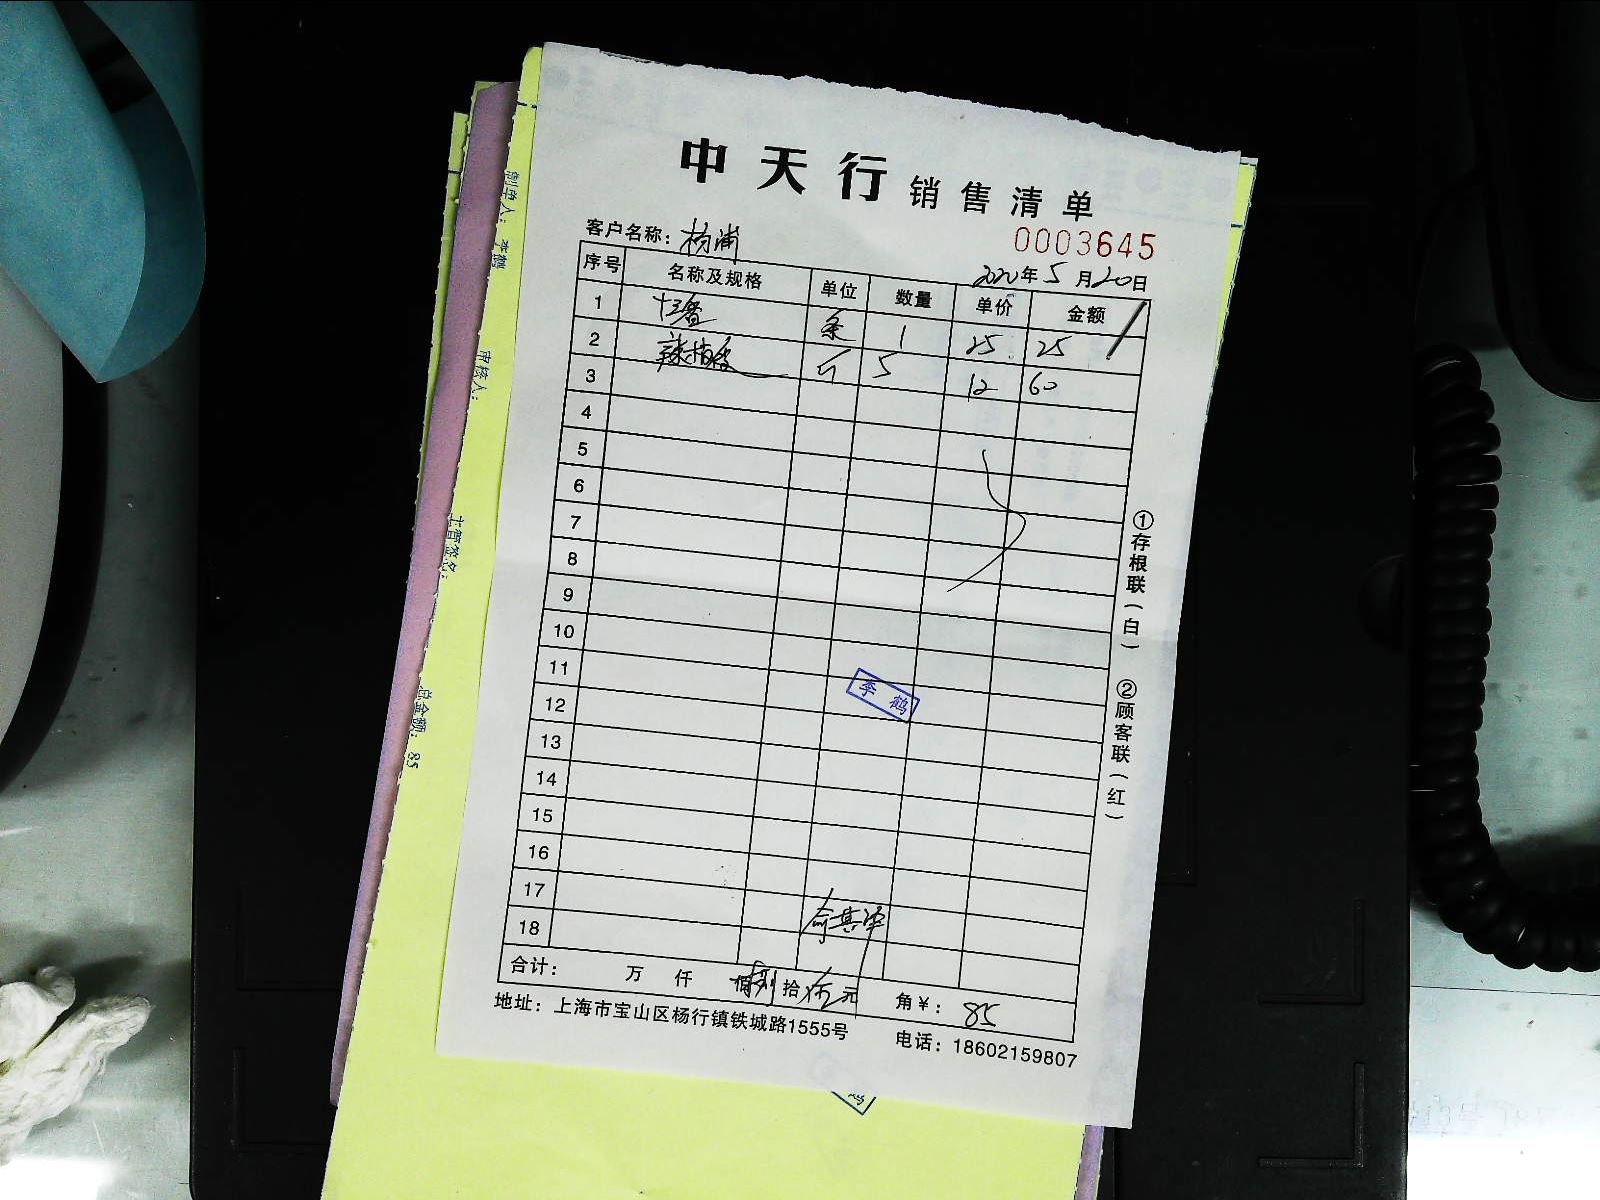 中天行 销售清单
0003645
客户名称：杨浦
2020年5月20日
序号 名称及规格 单位 数量 单价 金额
1 十三香 条 1 25 25
2 辣椒 斤 5 12 60
3
4
5
6
7
8
9
10
11
12
13
14
15
16
17
18
李鹤
合计： 万 仟 佰捌拾伍元 角¥：85
地址：上海市宝山区杨行镇铁城路1555号
电话：18602159807
①存根联（白） ②顾客联（红）
制单人：李鹤
审核人：
主管签名：
总金额：85
鹤